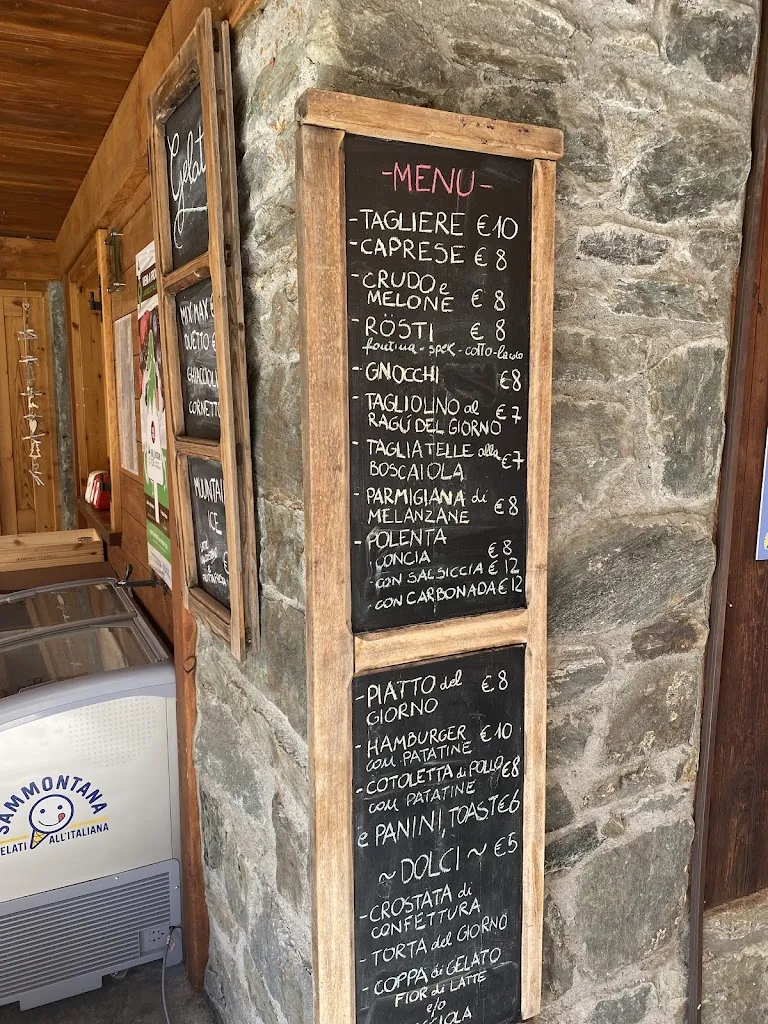 Gelat
MIX MAX €
DUETTO €
GHIACCIOLI
CORNETTO
MOUNTAI
ICE
SAMMONTANA
GELATI ALL'ITALIANA
-MENU-
-TAGLIERE €10
-CAPRESE € 8
-CRUDO e
MELONE € 8
-RÖSTI € 8
fontina-spek-cotto-lardo
-GNOCCHI €8
-TAGLIOLINO al
RAGÚ DEL GIORNO €7
-TAGLIATELLE alla
BOSCAIOLA €7
-PARMIGIANA di
MELANZANE €8
-POLENTA
CONCIA €8
-CON SALSICCIA € 12
-CON CARBONADA € 12
-PIATTO del
GIORNO €8
-HAMBURGER
con PATATINE €10
-COTOLETTA di POLLO €8
con PATATINE
e PANINI, TOAST €6
~DOLCI~ €5
-CROSTATA di
CONFETTURA
-TORTA del GIORNO
-COPPA di GELATO
FIOR di LATTE
e/o